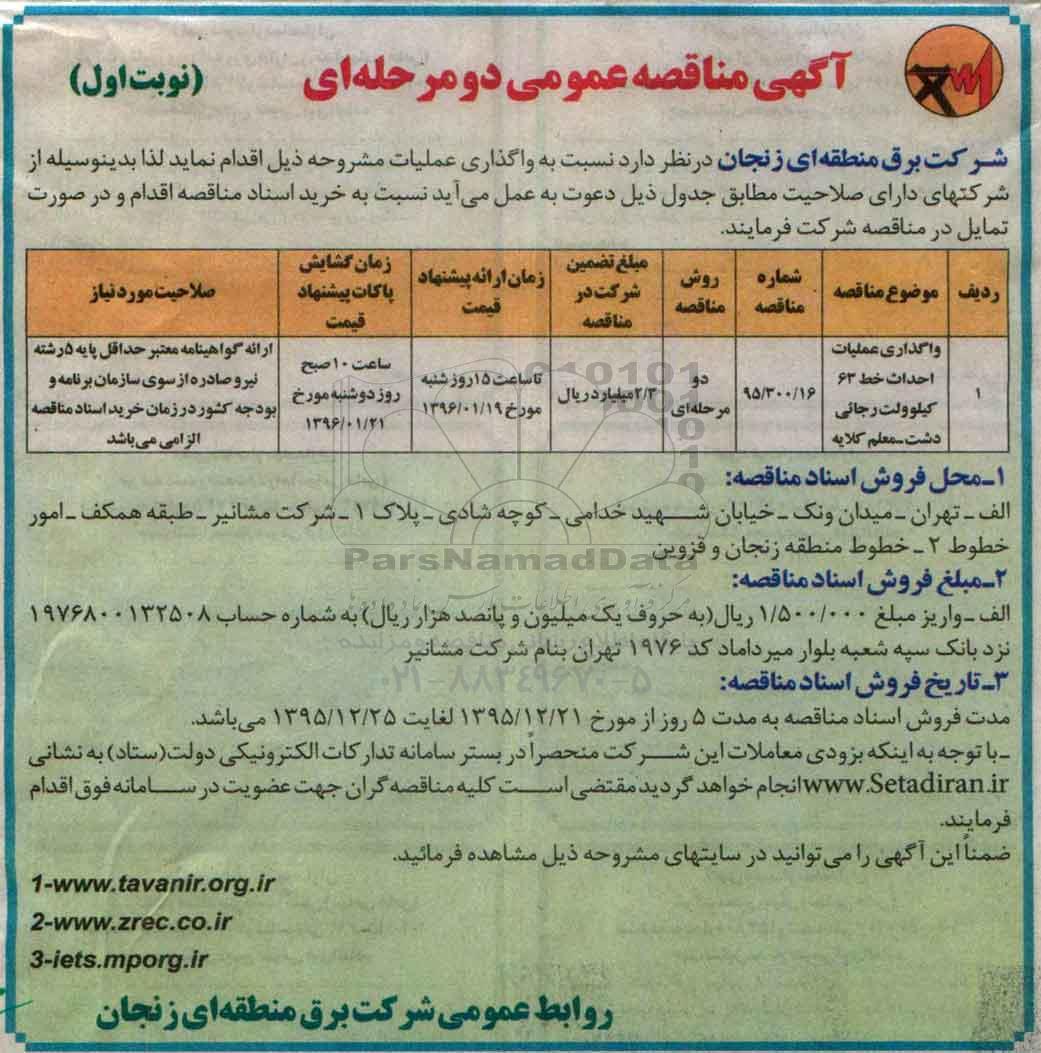 آگهی مناقصه عمومی دو مرحله‌ای
(نوبت اول)
شرکت برق منطقه‌ای زنجان درنظر دارد نسبت به واگذاری عملیات مشروحه ذیل اقدام نماید لذا بدینوسیله از
شرکتهای دارای صلاحیت مطابق جدول ذیل دعوت به عمل می‌آید نسبت به خرید اسناد مناقصه اقدام و در صورت
تمایل در مناقصه شرکت فرمایند.
ردیف
موضوع مناقصه
شماره
مناقصه
روش
مناقصه
مبلغ تضمین
شرکت در
مناقصه
زمان ارائه پیشنهاد
قیمت
زمان گشایش
پاکات پیشنهاد
قیمت
صلاحیت مورد نیاز
۱
واگذاری عملیات
احداث خط ۶۳
کیلوولت رجائی
دشت-معلم کلایه
۹۵/۳۰۰/۱۶
دو
مرحله‌ای
۲/۳میلیارد ریال
تا ساعت ۱۵ روز شنبه
مورخ ۱۳۹۶/۰۱/۱۹
ساعت ۱۰ صبح
روز دوشنبه مورخ
۱۳۹۶/۰۱/۲۱
ارائه گواهینامه معتبر حداقل پایه ۵ رشته
نیرو صادره از سوی سازمان برنامه و
بودجه کشور در زمان خرید اسناد مناقصه
الزامی می‌باشد
۱-محل فروش اسناد مناقصه:
الف- تهران -میدان ونک- خیابان شهید خدامی- کوچه شادی- پلاک ۱ -شرکت مشانیر-طبقه همکف -امور
خطوط ۲ - خطوط منطقه زنجان و قزوین
۲-مبلغ فروش اسناد مناقصه:
الف -واریز مبلغ ۱/۵۰۰/۰۰۰ ریال(به حروف یک میلیون و پانصد هزار ریال) به شماره حساب ۱۹۷۶۸۰۰۱۳۲۵۰۸
نزد بانک سپه شعبه بلوار میرداماد کد ۱۹۷۶ تهران بنام شرکت مشانیر
۳-تاریخ فروش اسناد مناقصه:
مدت فروش اسناد مناقصه به مدت ۵ روز از مورخ ۱۳۹۵/۱۲/۲۱ لغایت ۱۳۹۵/۱۲/۲۵ می‌باشد.
-با توجه به اینکه بزودی معاملات این شرکت منحصراً در بستر سامانه تدارکات الکترونیکی دولت(ستاد) به نشانی
www.Setadiran.ir انجام خواهد گردید مقتضی است کلیه مناقصه گران جهت عضویت در سامانه فوق اقدام
فرمایند.
ضمناً این آگهی را می‌توانید در سایتهای مشروحه ذیل مشاهده فرمائید.
1-www.tavanir.org.ir
2-www.zrec.co.ir
3-iets.mporg.ir
روابط عمومی شرکت برق منطقه‌ای زنجان
ParsNamadData
۰۲۱-۸۸۳۴۹۶۷۰-۵